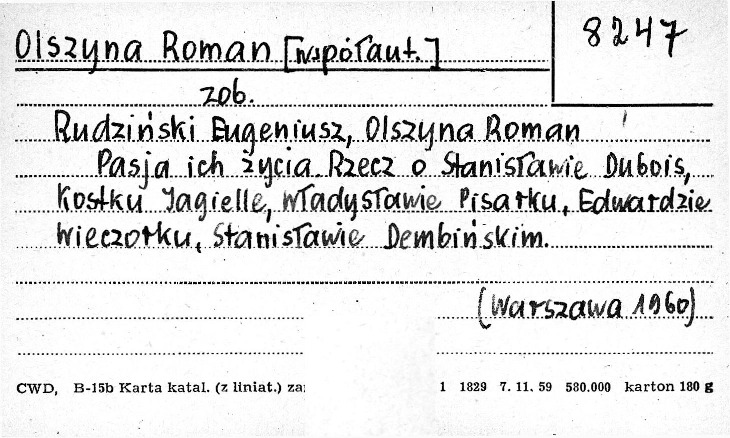 Olszyna Roman [współaut.]
8247
zob.
Rudziński Eugeniusz, Olszyna Roman
Pasja ich życia. Rzecz o Stanisławie Dubois,
Kostku Jagielle, Władysławie Pisarku, Edwardzie
Wieczorku, Stanisławie Dembińskim.
(Warszawa 1960)
CWD, B-15b Karta katal. (z liniat.) za
1 1829 7. 11. 59 580.000 karton 180 g